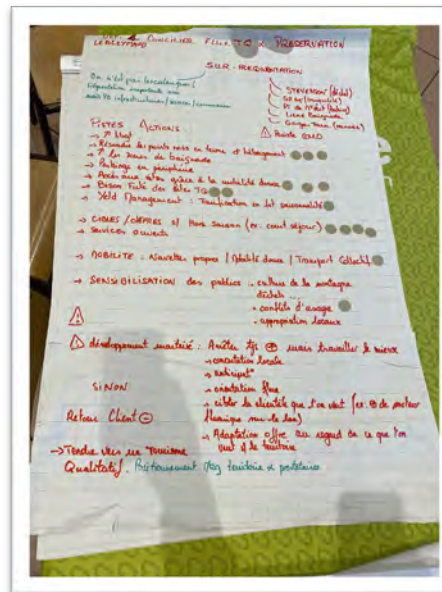 CONCILIER FLUX TQ & PRESERVATION
SUR-FREQUENTATION
On n'est pas les calanques !
fréquentation importante
mais PB infrastructures / services / communication
STEVENSON (déchet)
(tranquillité)
Pt de
Lieux Baignade
Gorges Tarn
Pointe
PISTES ACTIONS :
→ Résoudre les points noirs en terme d'hébergement
→ ↑ les zones de baignade
→ Parkings en périphérie
→ Accès aux sites grâce à la mobilité douce
→ Bison Futé des sites TQ
→ Yeld Management : Tarification en fct saisonnalité
→ CIBLES / OFFRES s/ Hors saison (ex: court séjour)
→ Services ouverts
→ MOBILITE : Navettes propres / Mobilité douce / Transport Collectif
→ SENSIBILISATION des publics . culture de la montagne
déchets ...
. conflits d'usage
. appropriation locaux
développement maitrisé : Arrêter tjs ⊕ mais travailler le mieux
→ concertation locale
→ anticipat°
SINON
→ orientation flux
→ cibler la clientèle que l'on veut (ex: de moteur
Retour Client ⊖
thermique sur le lac)
→ Adaptation offre au regard de ce que l'on
veut s/ le territoire
→ Tendre vers un Tourisme
Qualitatif. Positionnement territoire & partenaires